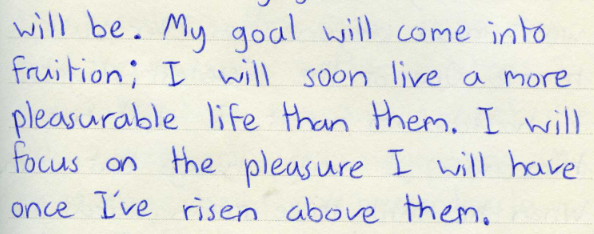 will be. My goal will come into
fruition; I will soon live a more
pleasurable life than them. I will
focus on the pleasure I will have
once I've risen above them.